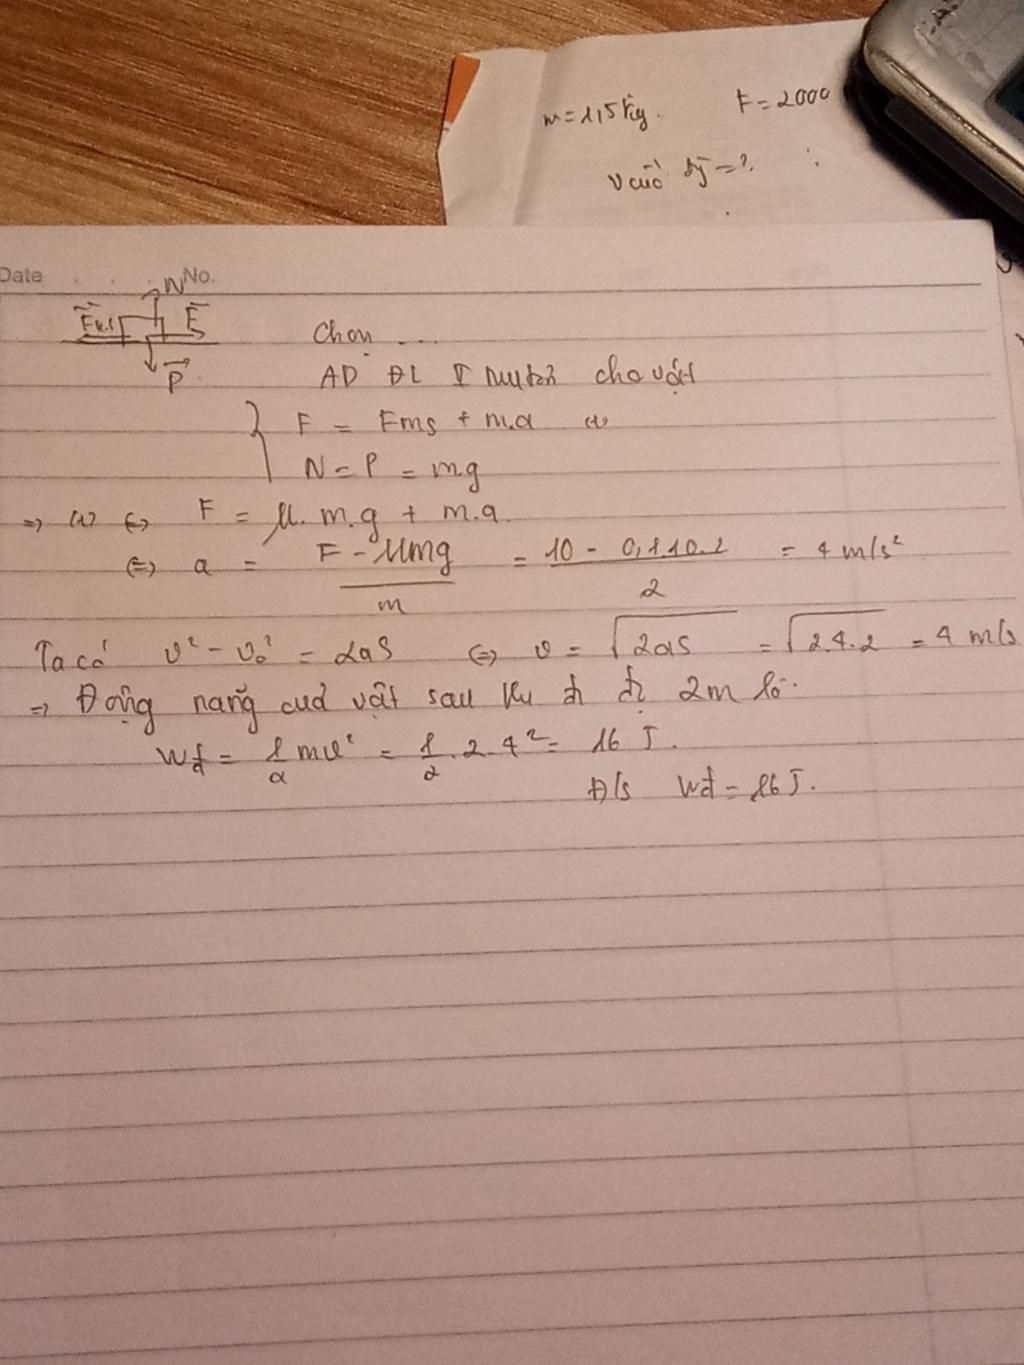 m = 1,5 kg. F = 2000
v cuối = ?
Date No.
N
Fms F
P
Chọn ...
AD ĐL II Niuton cho vật
F = Fms + m.a (1)
N = P = mg
=> (1) <=> F = μ. m.g + m.a
<=> a = F - μmg / m = 10 - 0,1.10.2 / 2 = 4 m/s²
Ta có v² - v₀² = 2aS <=> v = √2aS = √2.4.2 = 4 m/s
=> Động năng của vật sau khi đi 2m là:
Wđ = 1/2 mv² = 1/2 . 2 . 4² = 16 J.
Đ/s Wđ = 16 J.